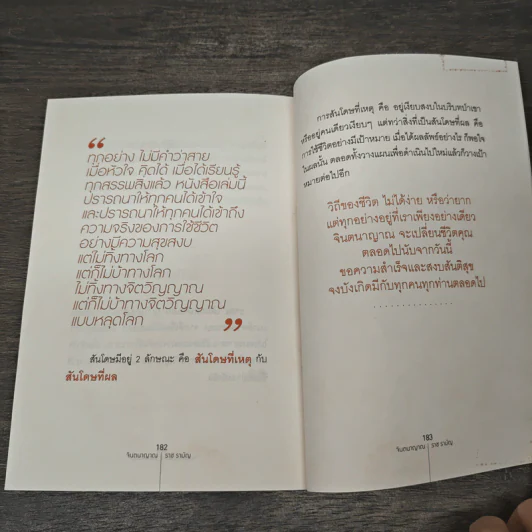 “
ทุกอย่าง ไม่มีคำว่าสาย
เมื่อหัวใจ คิดได้ เมื่อได้เรียนรู้
ทุกสรรพสิ่งแล้ว หนังสือเล่มนี้
ปรารถนาให้ทุกคนได้เข้าใจ
และปรารถนาให้ทุกคนได้เข้าถึง
ความจริงของการใช้ชีวิต
อย่างมีความสุขสงบ
แต่ไม่ทิ้งทางโลก
แต่ก็ไม่บ้าทางโลก
ไม่ทิ้งทางจิตวิญญาณ
แต่ก็ไม่บ้าทางจิตวิญญาณ
แบบหลุดโลก
”
สันโดษมีอยู่ 2 ลักษณะ คือ สันโดษที่เหตุ กับ
สันโดษที่ผล
182
จินตนาญาณ | ราส รามัญ
การสันโดษที่เหตุ คือ อยู่เงียบสงบในบริบทป่าเขา
หรืออยู่คนเดียวเงียบๆ แต่ทว่าสิ่งที่เป็นสันโดษที่ผล คือ
การใช้ชีวิตอย่างมีเป้าหมาย เมื่อได้ผลลัพธ์อย่างไร ก็พอใจ
ในผลนั้น ตลอดทั้งวางแผนเพื่อดำเนินไปใหม่แล้วก็วางเป้า
หมายต่อไปอีก
วิถีของชีวิต ไม่ได้ง่าย หรือว่ายาก
แต่ทุกอย่างอยู่ที่เราเพียงอย่างเดียว
จินตนาญาณ จะเปลี่ยนชีวิตคุณ
ตลอดไปนับจากวันนี้
ขอความสำเร็จและสงบสันติสุข
จงบังเกิดมีกับทุกคนทุกท่านตลอดไป
183
จินตนาญาณ | ราส รามัญ